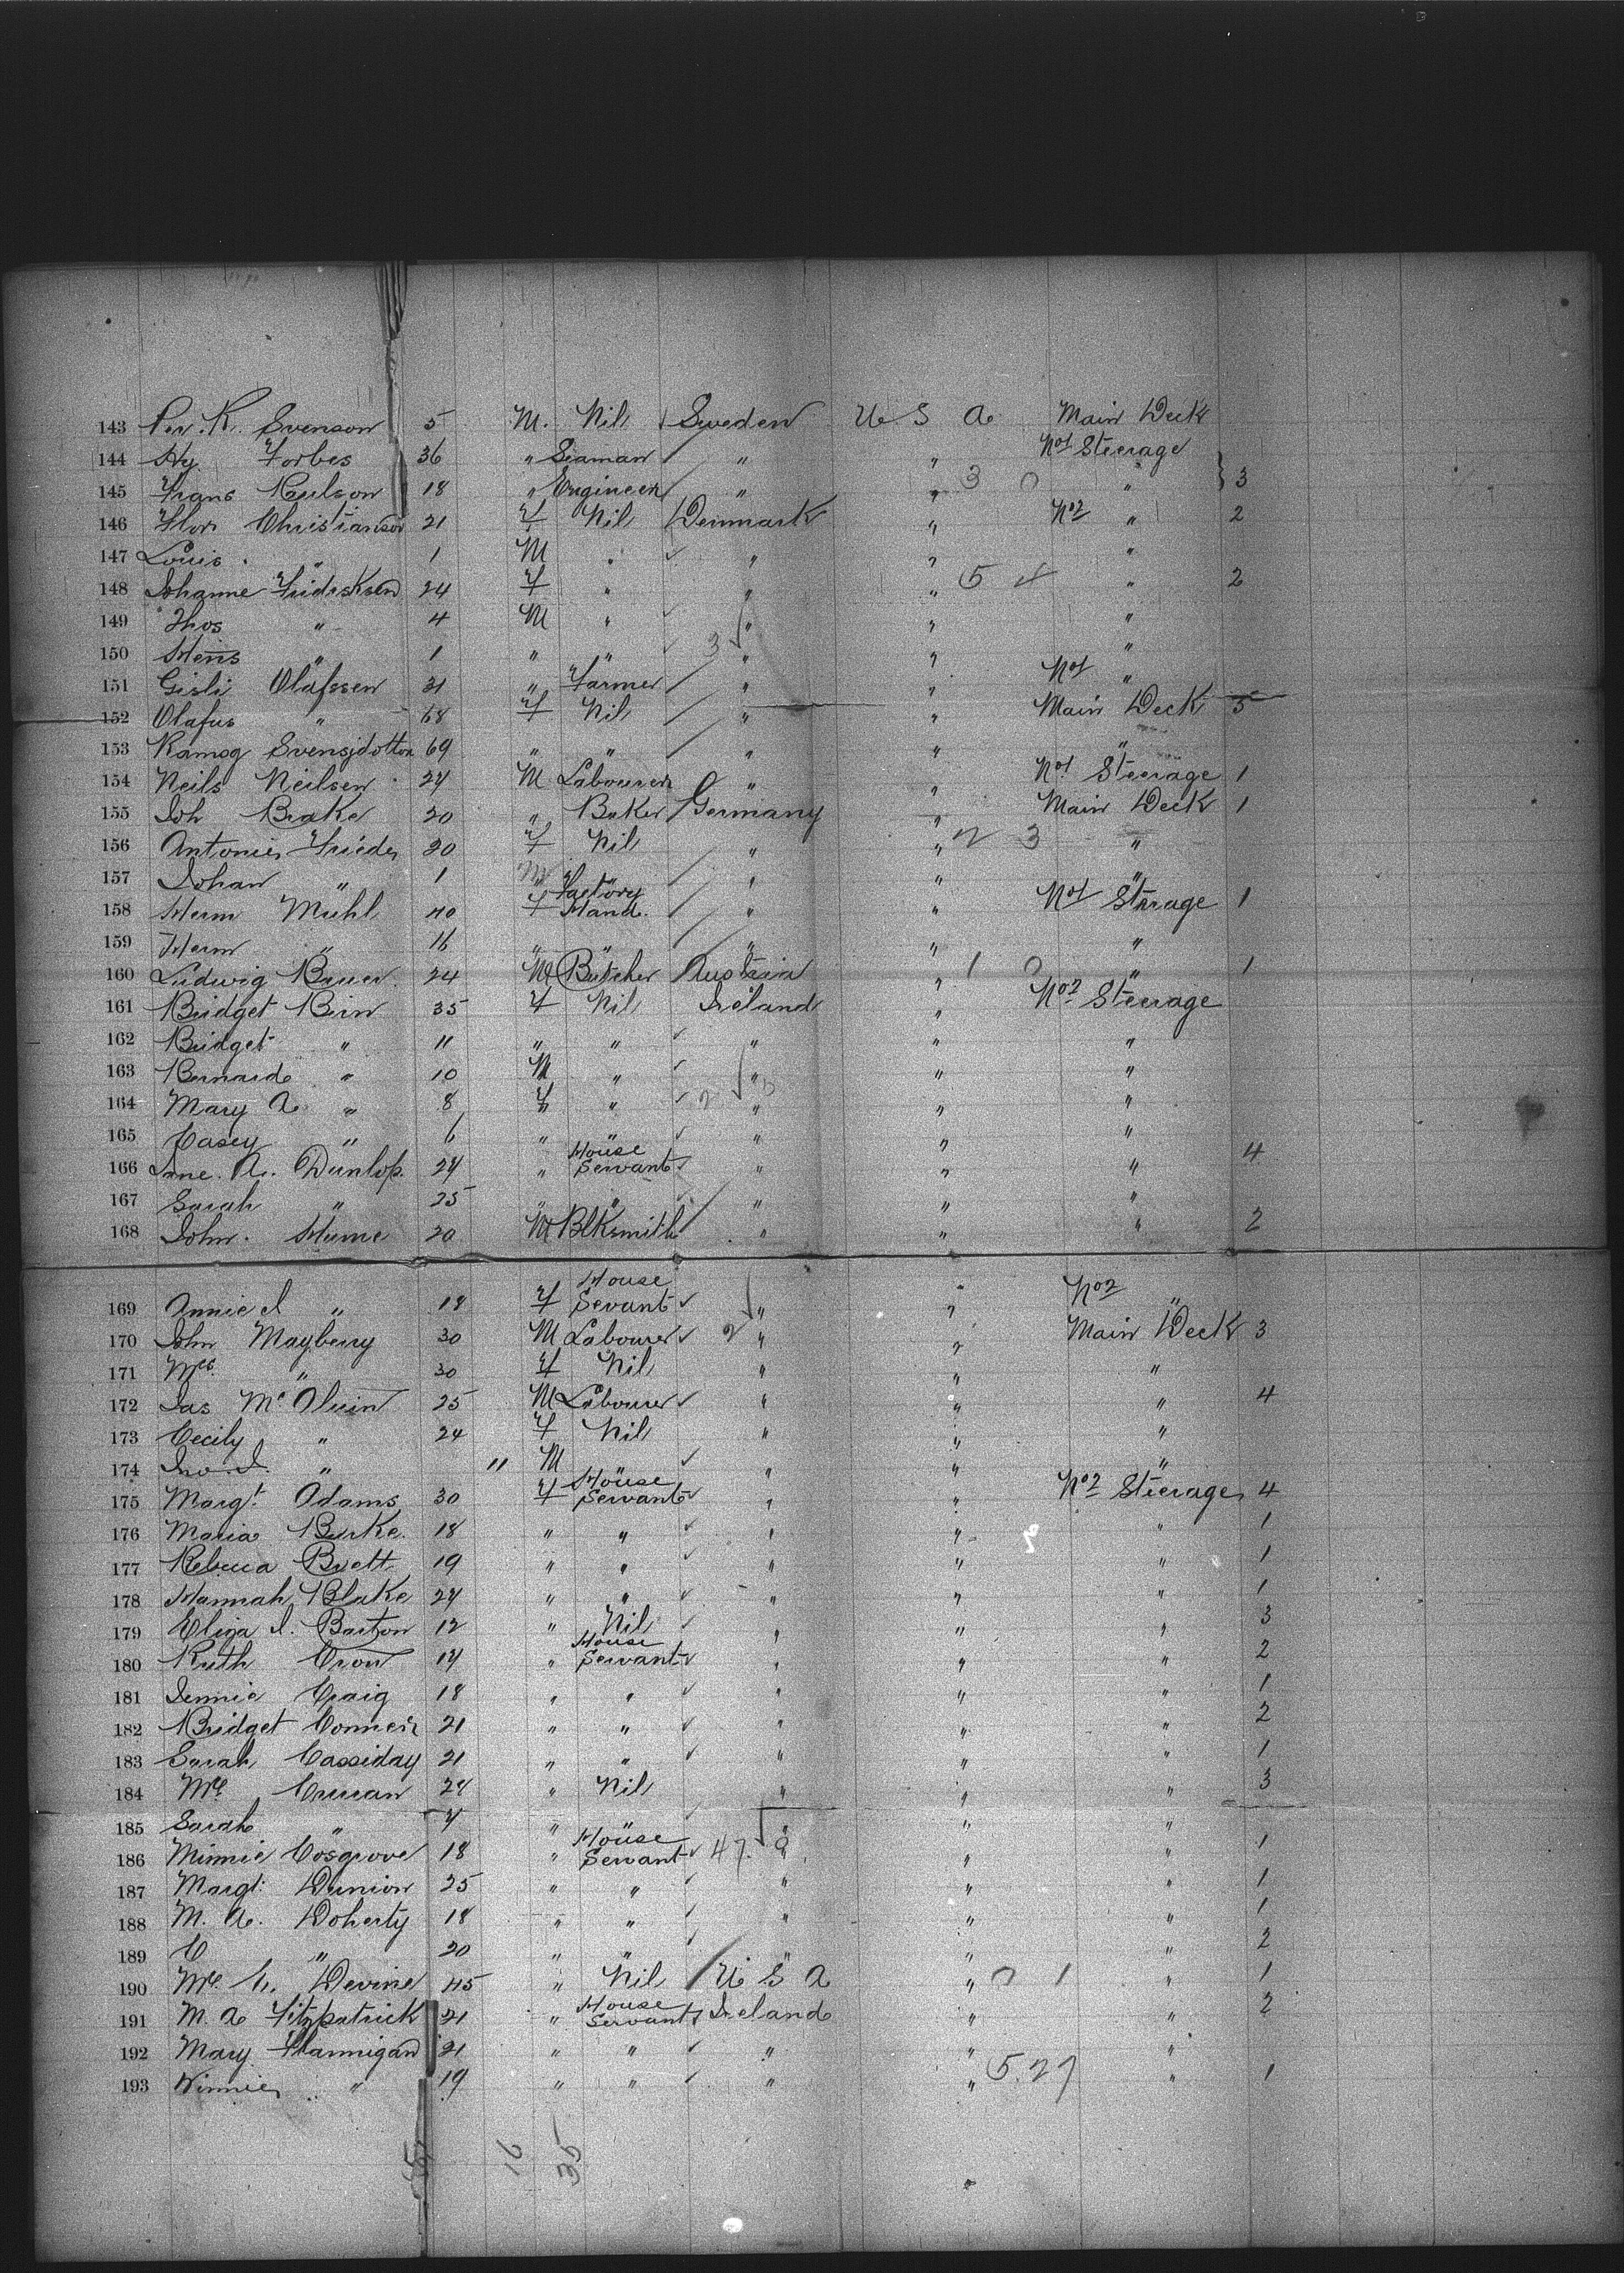 143 Per. K. Svenson 5 M. Nil Sweden U S A Main Deck
144 Hy. Forbes 36 " Seaman " " No1 Steerage
145 Frans Paulson 18 " Engineer " " 3 0 " } 3
146 Christianson 21 F Nil Denmark " No2 " 2
147 Louis " 1 M " " " "
148 Johanne 24 F " " " 5 4 " 2
149 Thos " 4 M " " " "
150 " 1 " " 3 " " "
151 Gisli Olafssen 31 " Farmer " " No1 "
152 Olafus " 68 F Nil " " Main Deck 5
153 69 " " " " "
154 Neils Neilsen 24 M Labourer " " No1 Steerage 1
155 Joh Brake 20 " Baker Germany " Main Deck 1
156 20 F Nil " " 2 3 "
157 Johan " 1 M " " " "
158 Herm Muhl 40 F Factory Hand. " " No1 Steerage 1
159 Herm " 16 " " " " "
160 Ludwig Bauer 24 M Butcher Austria " 1 0 " 1
161 Bridget Birn 35 F Nil Ireland " No2 Steerage
162 Bridget " 11 " " " " "
163 Bernard " 10 M " " " "
164 Mary A. " 8 F " " " "
165 Casey " 6 " " " " "
166 A. Dunlop. 24 " House Servant " " " 4
167 Sarah " 25 " " " " "
168 John. Hume 20 M Blksmith " " " 2
169 Annie J " 18 F House Servant " " No2 "
170 John Mayberry 30 M Labourer 2 " " Main Deck 3
171 Mrs. " 30 F Nil " " "
172 Jas 25 M Labourer " " " 4
173 Cecily " 24 F Nil " " "
174 Jno. J. " 11 M " " "
175 Margt. Adams 30 F House Servant " " No2 Steerage 4
176 Maria Burke. 18 " " " " " 1
177 Rebecca Brett 19 " " " " " 1
178 Hannah Blake 24 " " " " " 1
179 Eliza J. Barton 12 " Nil " " " 3
180 Ruth Crow 14 " House Servant " " " 2
181 Jennie Craig 18 " " " " " 1
182 Bridget 21 " " " " " 2
183 Sarah Cassiday 21 " " " " " 1
184 Mrs Curran 28 " Nil " " " 3
185 Sarah " 4 " " " "
186 Minnie Cosgrove 18 " House Servant 47. 9 " " " 1
187 Margt. 25 " " " " " 1
188 M. A. Doherty 18 " " " " " 1
189 C " 20 " " " " " 2
190 Mrs C. Devine 45 " Nil U S A " 0 1 " 1
191 M. A Fitzpatrick 21 " House Servant Ireland " " 2
192 Mary Flannigan 21 " " " " "
193 Winnie " 19 " " " " 5.27 " 1
16 35